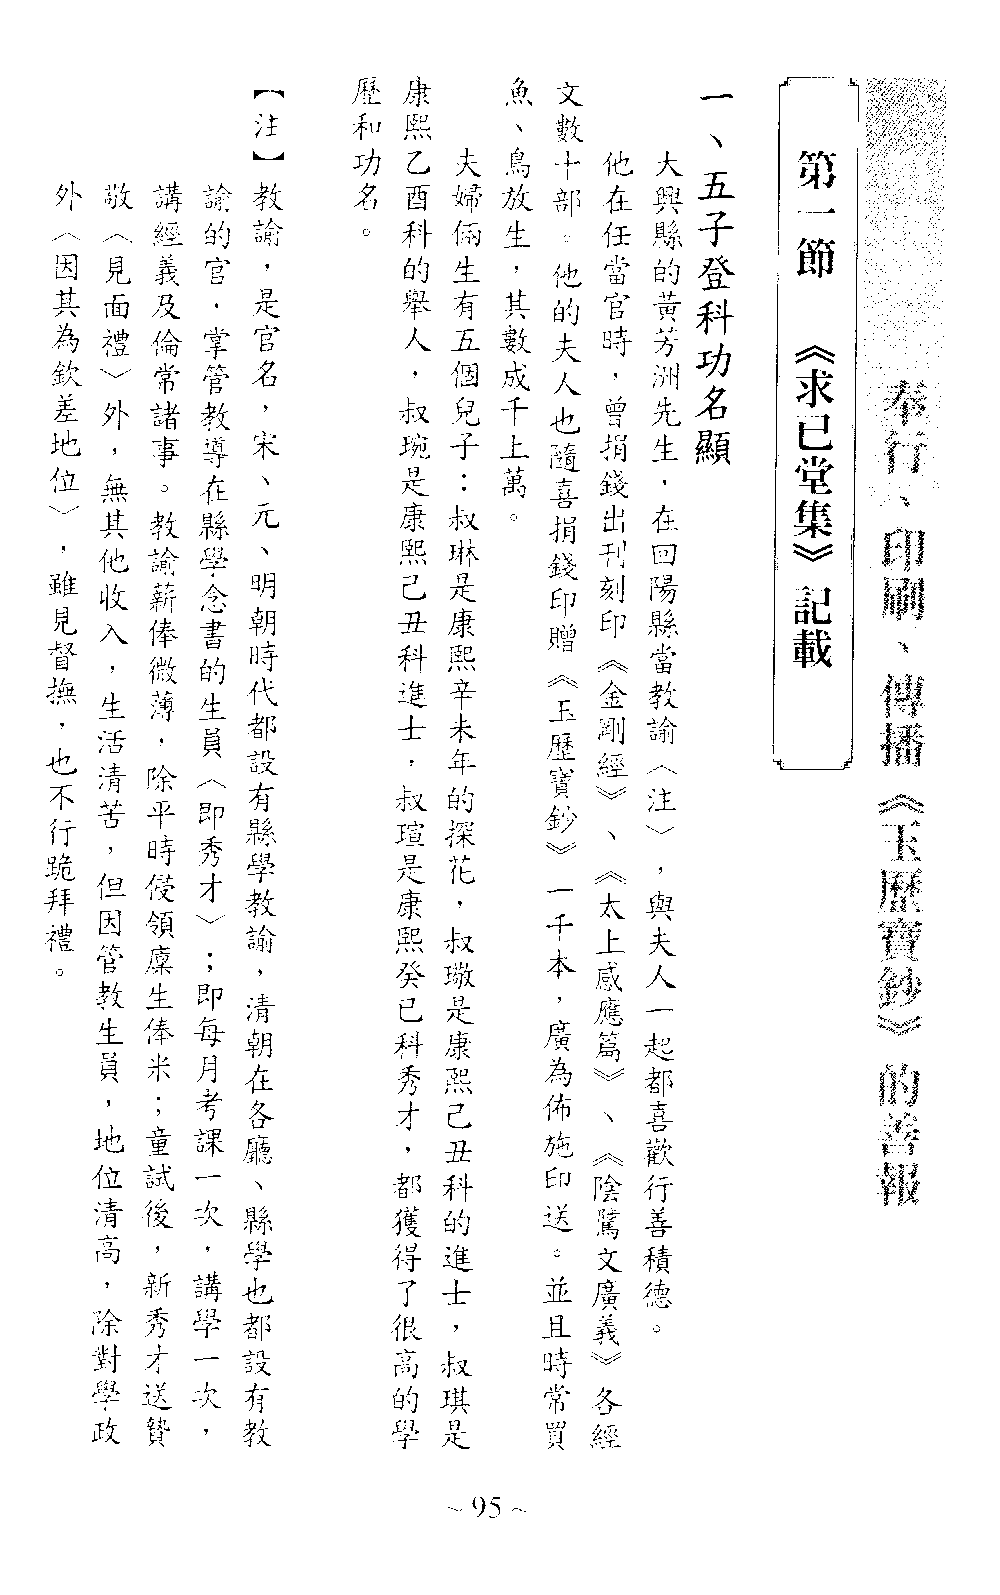 奉行、印刷、傳播《玉歷寶鈔》的善報
第一節　《求已堂集》記載
一、五子登科功名顯
大興縣的黃芳洲先生，在回陽縣當教諭〈注〉，與夫人一起都喜歡行善積德。
他在任當官時，曾捐錢出刊刻印《金剛經》、《太上感應篇》、《陰騭文廣義》各經
文數十部。他的夫人也隨喜捐錢印贈《玉歷寶鈔》一千本，廣為佈施印送。並且時常買
魚、鳥放生，其數成千上萬。
夫婦倆生有五個兒子：叔琳是康熙辛未年的探花，叔璥是康熙己丑科的進士，叔琪是
康熙乙酉科的舉人，叔琬是康熙己丑科進士，叔瑄是康熙癸已科秀才，都獲得了很高的學
歷和功名。
【注】教諭，是官名，宋、元、明朝時代都設有縣學教諭，清朝在各廳、縣學也都設有教
諭的官，掌管教導在縣學念書的生員〈即秀才〉；即每月考課一次，講學一次，
講經義及倫常諸事。教諭薪俸微薄，除平時侵領廩生俸米；童試後，新秀才送贄
敬〈見面禮〉外，無其他收入，生活清苦，但因管教生員，地位清高，除對學政
外〈因其為欽差地位〉，雖見督撫，也不行跪拜禮。
~ 95 ~